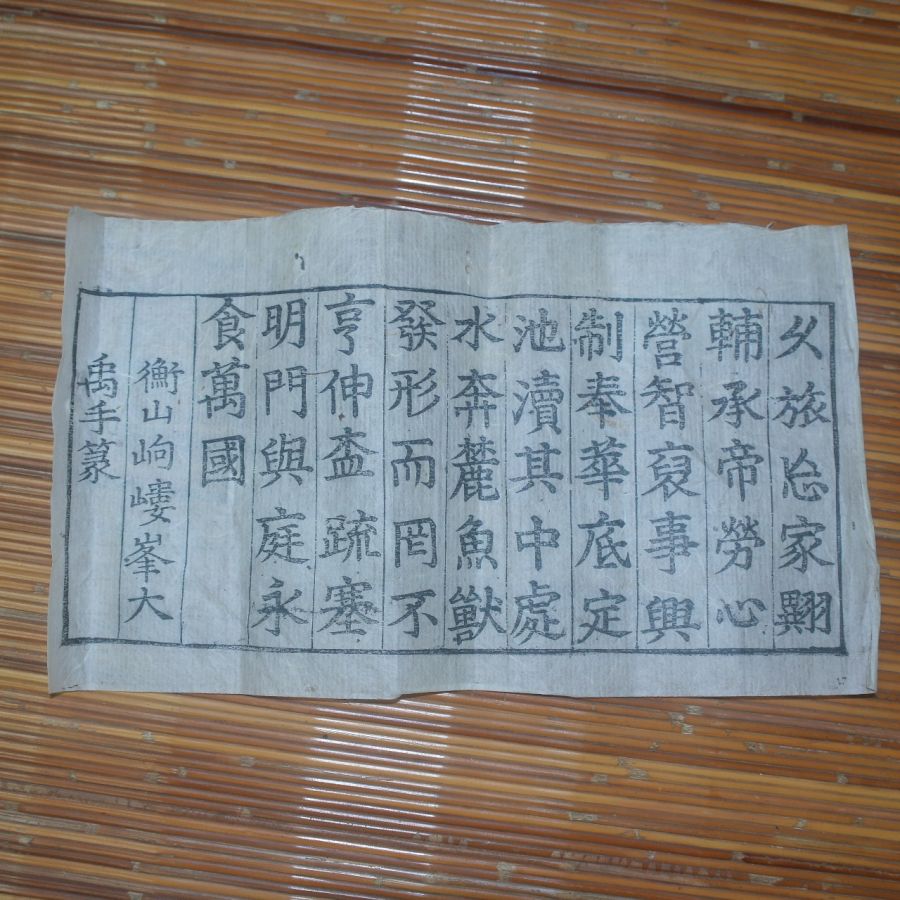 久旅忩家翾
輔承帝勞心
營智裒事興
制奉華底定
池瀆其中處
水奔麓魚獸
發形而罔不
亨伸盇疏塞
明門與庭永
食萬國
衡山岣嶁峯大
禹手篆